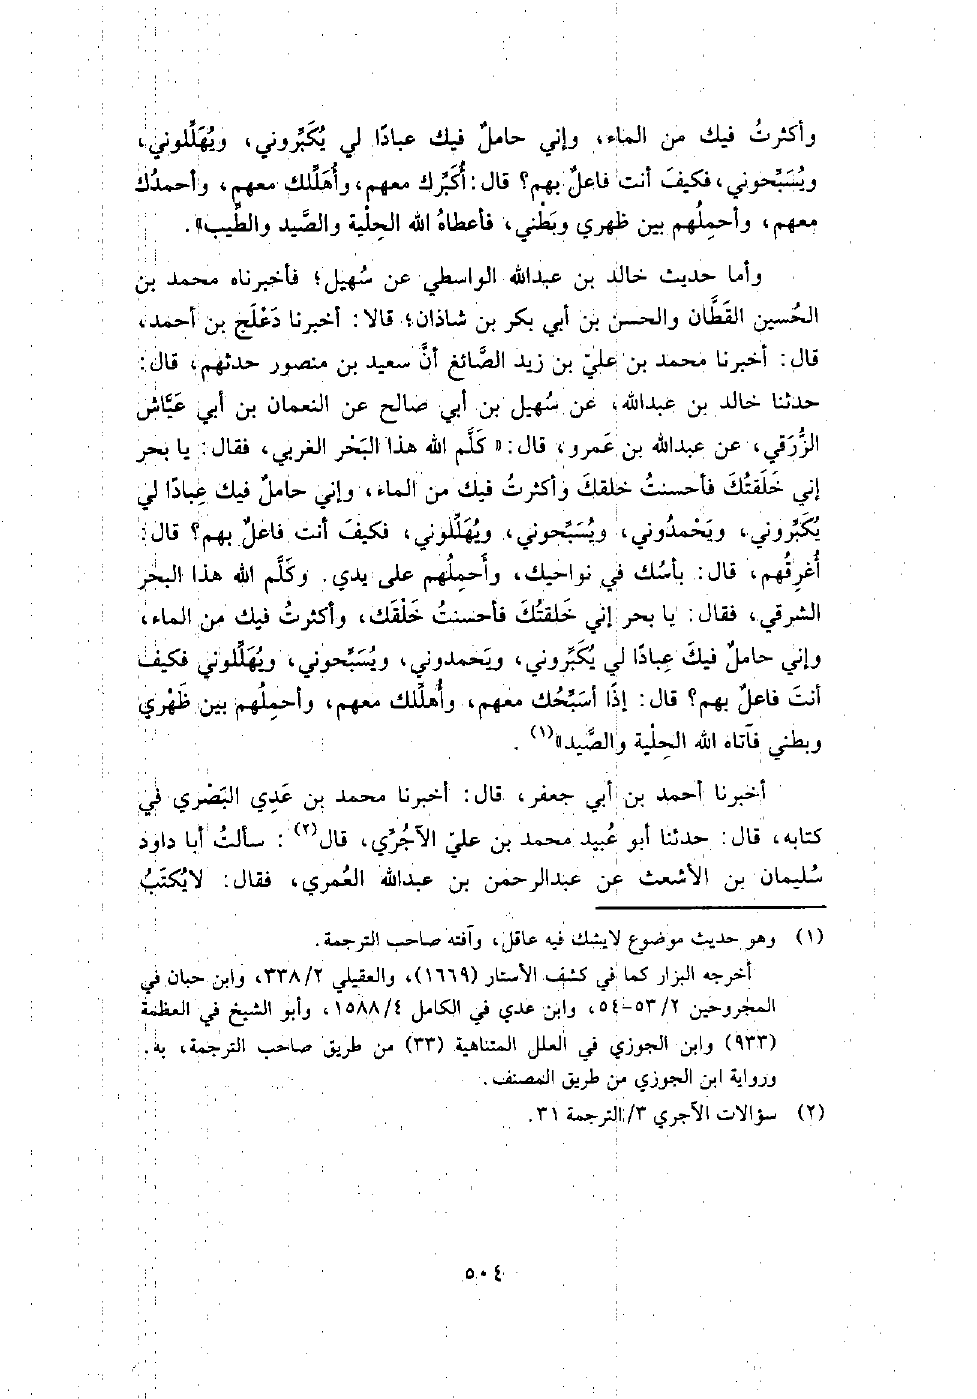 وأكثرتُ فيك من الماء، وإني حاملٌ فيك عبادًا لي يُكَبِّروني، ويُهَلِّلوني،
ويُسَبِّحوني، فكيفَ أنت فاعلٌ بهم؟ قال: أُكَبِّرك معهم، وأُهَلِّلك معهم، وأحمدُك
معهم، وأحمِلُهم بين ظهري وبَطْني، فأعطاهُ الله الحِلْية والصَّيد والطِّيب».
وأما حديث خالد بن عبدالله الواسطي عن سُهيل؛ فأخبرناه محمد بن
الحُسين القَطَّان والحسن بن أبي بكر بن شاذان؛ قالا: أخبرنا دَعْلَج بن أحمد،
قال: أخبرنا محمد بن عليّ بن زيد الصَّائغ أنَّ سعيد بن منصور حدثهم، قال:
حدثنا خالد بن عبدالله، عن سُهيل بن أبي صالح عن النعمان بن أبي عَيَّاش
الزُّرَقي، عن عبدالله بن عَمرو، قال: «كَلَّم الله هذا البَحْر الغربي، فقال: يا بحر
إني خَلَقتُكَ فأحسنتُ خلقكَ وأكثرتُ فيك من الماء، وإني حاملٌ فيك عِبادًا لي
يُكَبِّروني، ويَحْمدُوني، ويُسَبِّحوني، ويُهَلِّلوني، فكيفَ أنت فاعلٌ بهم؟ قال:
أُغرِقُهم، قال: بأسُك في نواحيك، وأَحمِلُهم على يدي. وكَلَّم الله هذا البحْر
الشرقي، فقال: يا بحر إني خَلقتُكَ فأحسنتُ خَلْقَك، وأكثرتُ فيك من الماء،
وإني حاملٌ فيكَ عِبادًا لي يُكَبِّروني، ويَحمدوني، ويُسَبِّحوني، ويُهَلِّلوني فكيفَ
أنتَ فاعلٌ بهم؟ قال: إذًا أسَبِّحُك معهم، وأُهلِّلك معهم، وأحمِلُهم بين ظَهْري
وبطني فآتاه الله الحِلْية والصَّيد»(١).
أخبرنا أحمد بن أبي جعفر، قال: أخبرنا محمد بن عَدِي البَصْري في
كتابه، قال: حدثنا أبو عُبيد محمد بن عليّ الآجُرِّي، قال(٢): سألتُ أبا داود
سُليمان بن الأشعث عن عبدالرحمن بن عبدالله العُمري، فقال: لايُكتَبُ
(١) وهو حديث موضوع لايشك فيه عاقل، وآفته صاحب الترجمة.
أخرجه البزار كما في كشف الأستار (١٦٦٩)، والعقيلي ٢/ ٣٣٨، وابن حبان في
المجروحين ٢/ ٥٣-٥٤، وابن عدي في الكامل ٤/ ١٥٨٨، وأبو الشيخ في العظمة
(٩٣٣) وابن الجوزي في العلل المتناهية (٣٣) من طريق صاحب الترجمة، به.
ورواية ابن الجوزي من طريق المصنف.
(٢) سؤالات الآجري ٣/ الترجمة ٣١.
٥٠٤